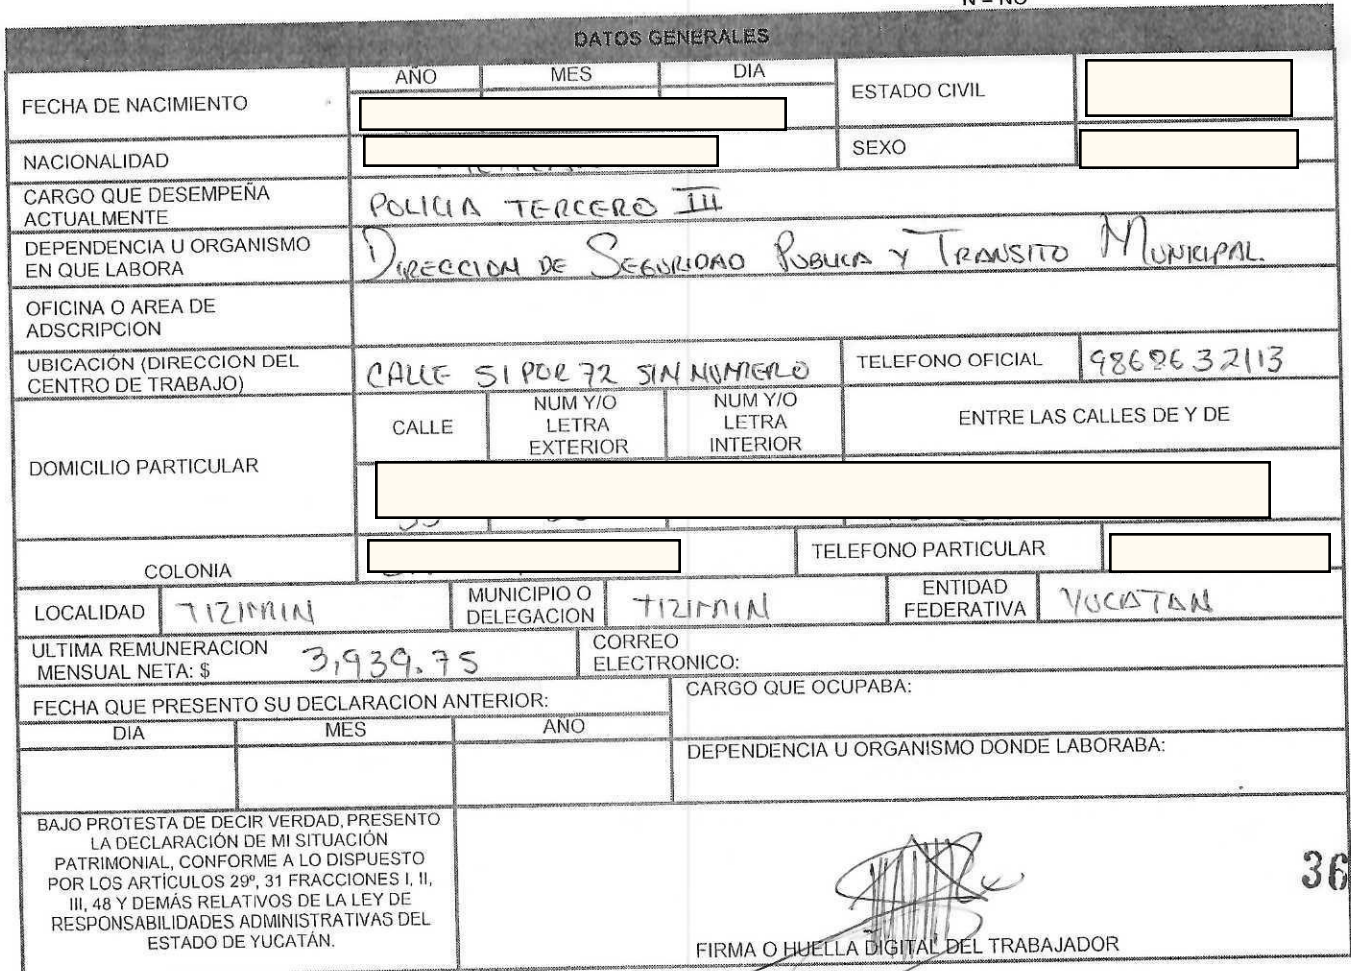 N = NO
DATOS GENERALES
FECHA DE NACIMIENTO
AÑO MES DIA
ESTADO CIVIL
NACIONALIDAD
SEXO
CARGO QUE DESEMPEÑA
ACTUALMENTE
POLICIA TERCERO III
DEPENDENCIA U ORGANISMO
EN QUE LABORA
DIRECCION DE SEGURIDAD PUBLICA Y TRANSITO MUNICIPAL.
OFICINA O AREA DE
ADSCRIPCION
UBICACIÓN (DIRECCION DEL
CENTRO DE TRABAJO)
CALLE 51 POR 72 SIN NUMERO
TELEFONO OFICIAL
9868632113
DOMICILIO PARTICULAR
CALLE
NUM Y/O
LETRA
EXTERIOR
NUM Y/O
LETRA
INTERIOR
ENTRE LAS CALLES DE Y DE
COLONIA
TELEFONO PARTICULAR
LOCALIDAD
TIZIMIN
MUNICIPIO O
DELEGACION
TIZIMIN
ENTIDAD
FEDERATIVA
YUCATAN
ULTIMA REMUNERACION
MENSUAL NETA: $
3,939.75
CORREO
ELECTRONICO:
FECHA QUE PRESENTO SU DECLARACION ANTERIOR:
DIA MES ANO
CARGO QUE OCUPABA:
DEPENDENCIA U ORGANISMO DONDE LABORABA:
BAJO PROTESTA DE DECIR VERDAD, PRESENTO
LA DECLARACIÓN DE MI SITUACIÓN
PATRIMONIAL, CONFORME A LO DISPUESTO
POR LOS ARTÍCULOS 29º, 31 FRACCIONES I, II,
III, 48 Y DEMÁS RELATIVOS DE LA LEY DE
RESPONSABILIDADES ADMINISTRATIVAS DEL
ESTADO DE YUCATÁN.
36
FIRMA O HUELLA DIGITAL DEL TRABAJADOR